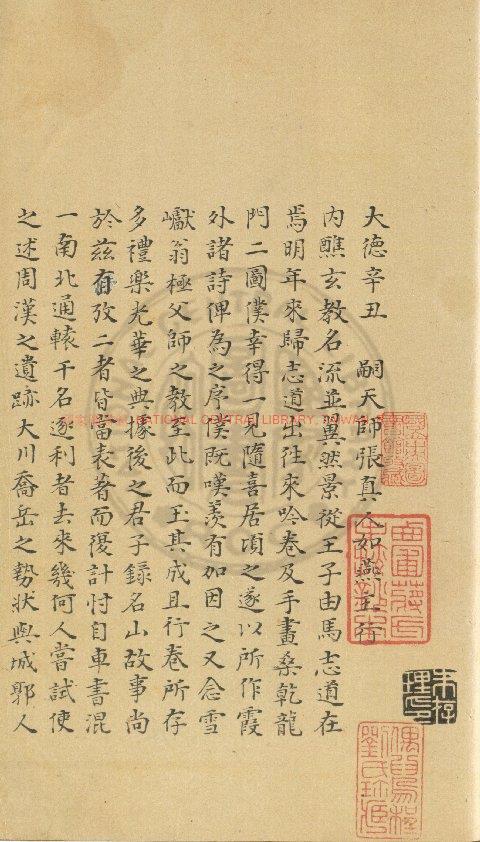 大德辛丑　嗣天師張真人如燕主行
內醮玄教名流並翼然景從王子由馬志道在
焉明年來歸志道出往來吟卷及手畫桑乾龍
門二圖僕幸得一見隨喜居頃之遂以所作霞
外諸詩俾為之序僕既嘆羨有加因之又念雪
巘翁極父師之教至此而玉其成且行卷所存
多禮樂光華之典據後之君子錄名山故事尚
於茲有攷二者皆當表著而復計忖自車書混
一南北通轅千名逐利者去來幾何人嘗試使
之述周漢之遺跡大川喬岳之勢狀與城郭人
NATIONAL CENTRAL LIBRARY, TAIWAN